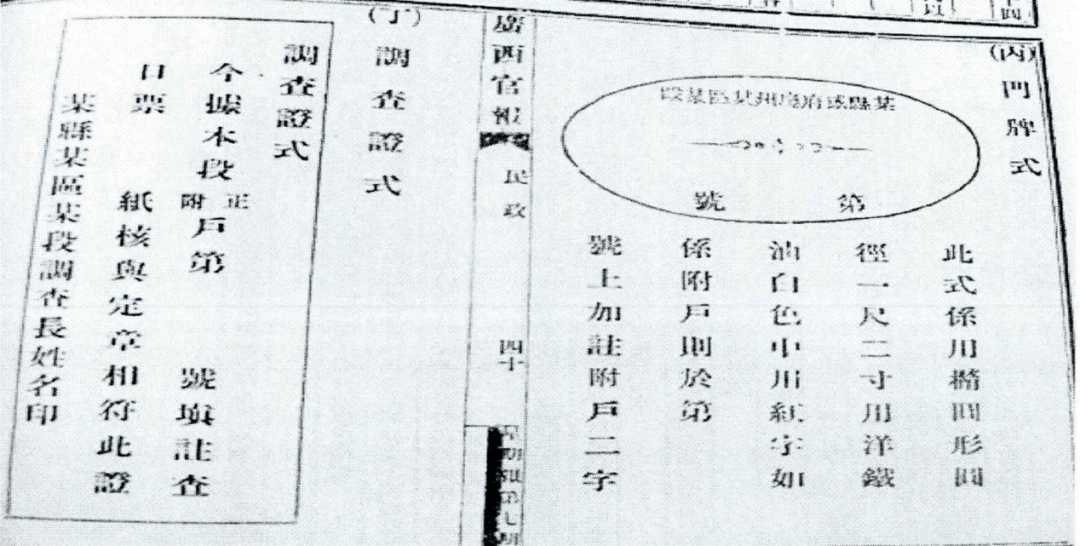 (丙)門牌式
某縣或府廳州某區某段
第　號
此式係用橢圓形圓
徑一尺二寸用洋鐵
油白色中用紅字如
係附戶則於第
號上加註附戶二字
廣西官報
民政
四十
星期報第七期
(丁)調查證式
調查證式
今據本段正附戶第　號填註查
口票　紙核與定章相符此證
某縣某區某段調查長姓名印